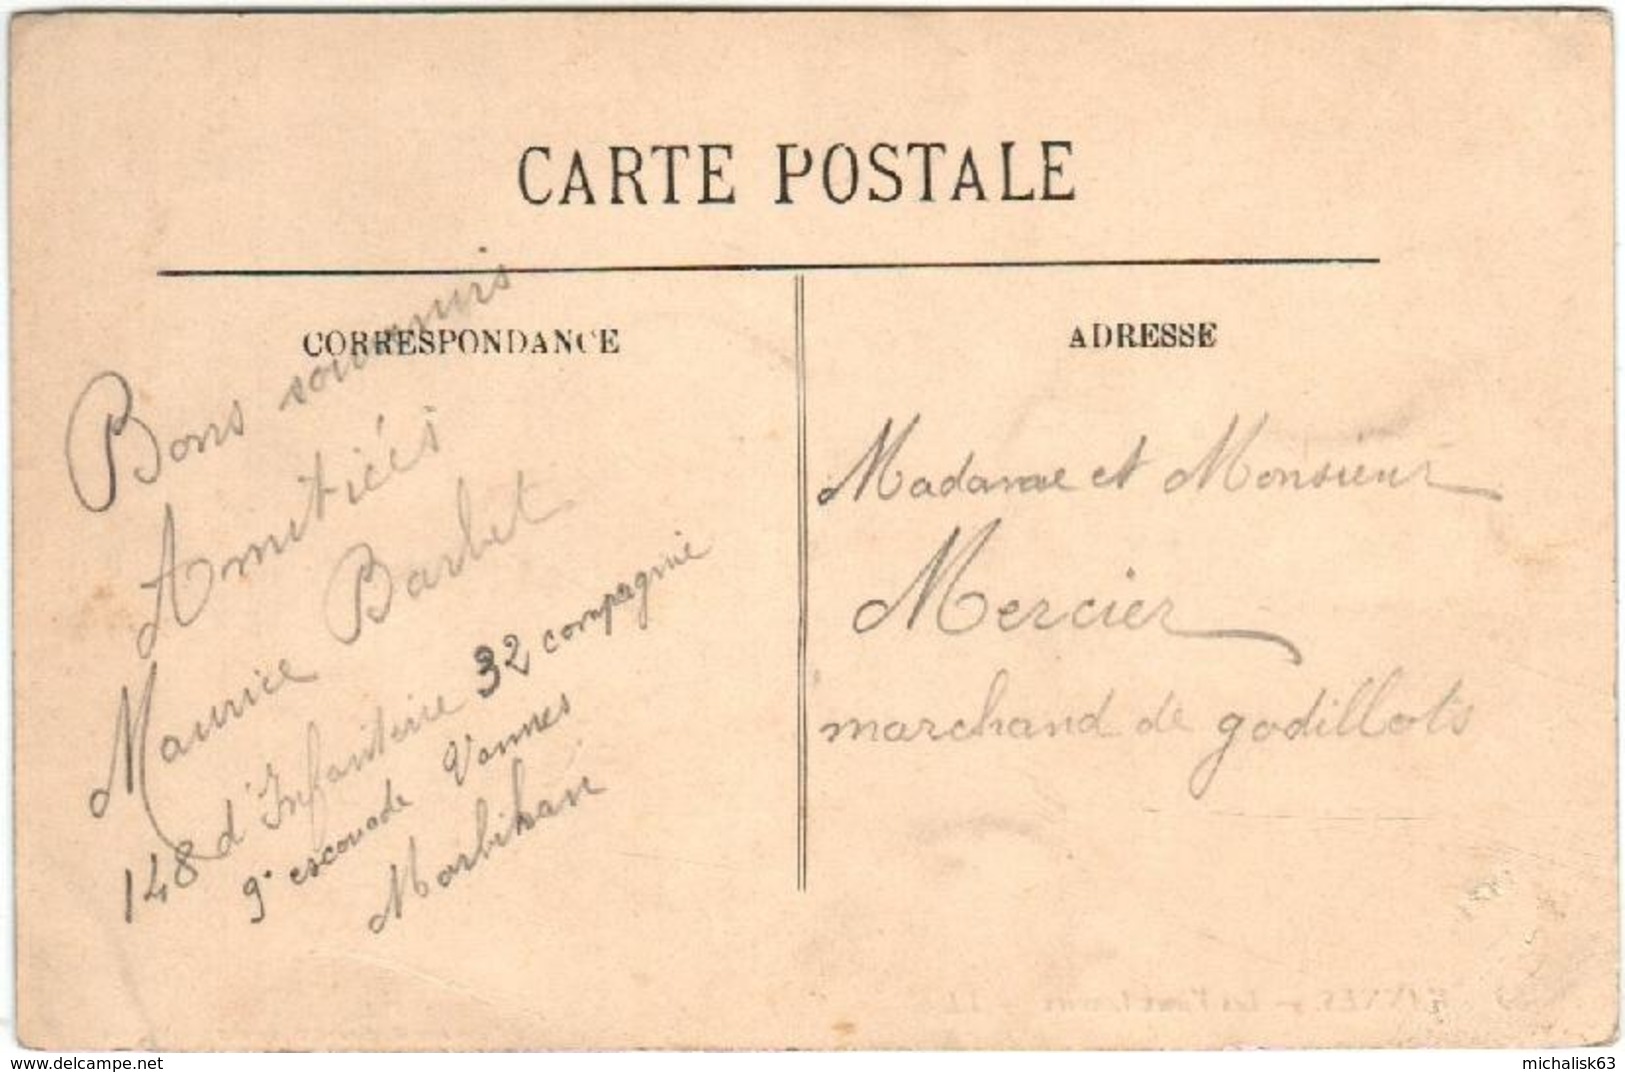 CARTE POSTALE
CORRESPONDANCE
Bons souvenirs
Amitiées
Maurice Barbet
148 d'Infanterie 32 compagnie
9e escouade Vannes
Morbihan
ADRESSE
Madame et Monsieur
Mercier
marchand de godillots
delcampe.net
michalisk63